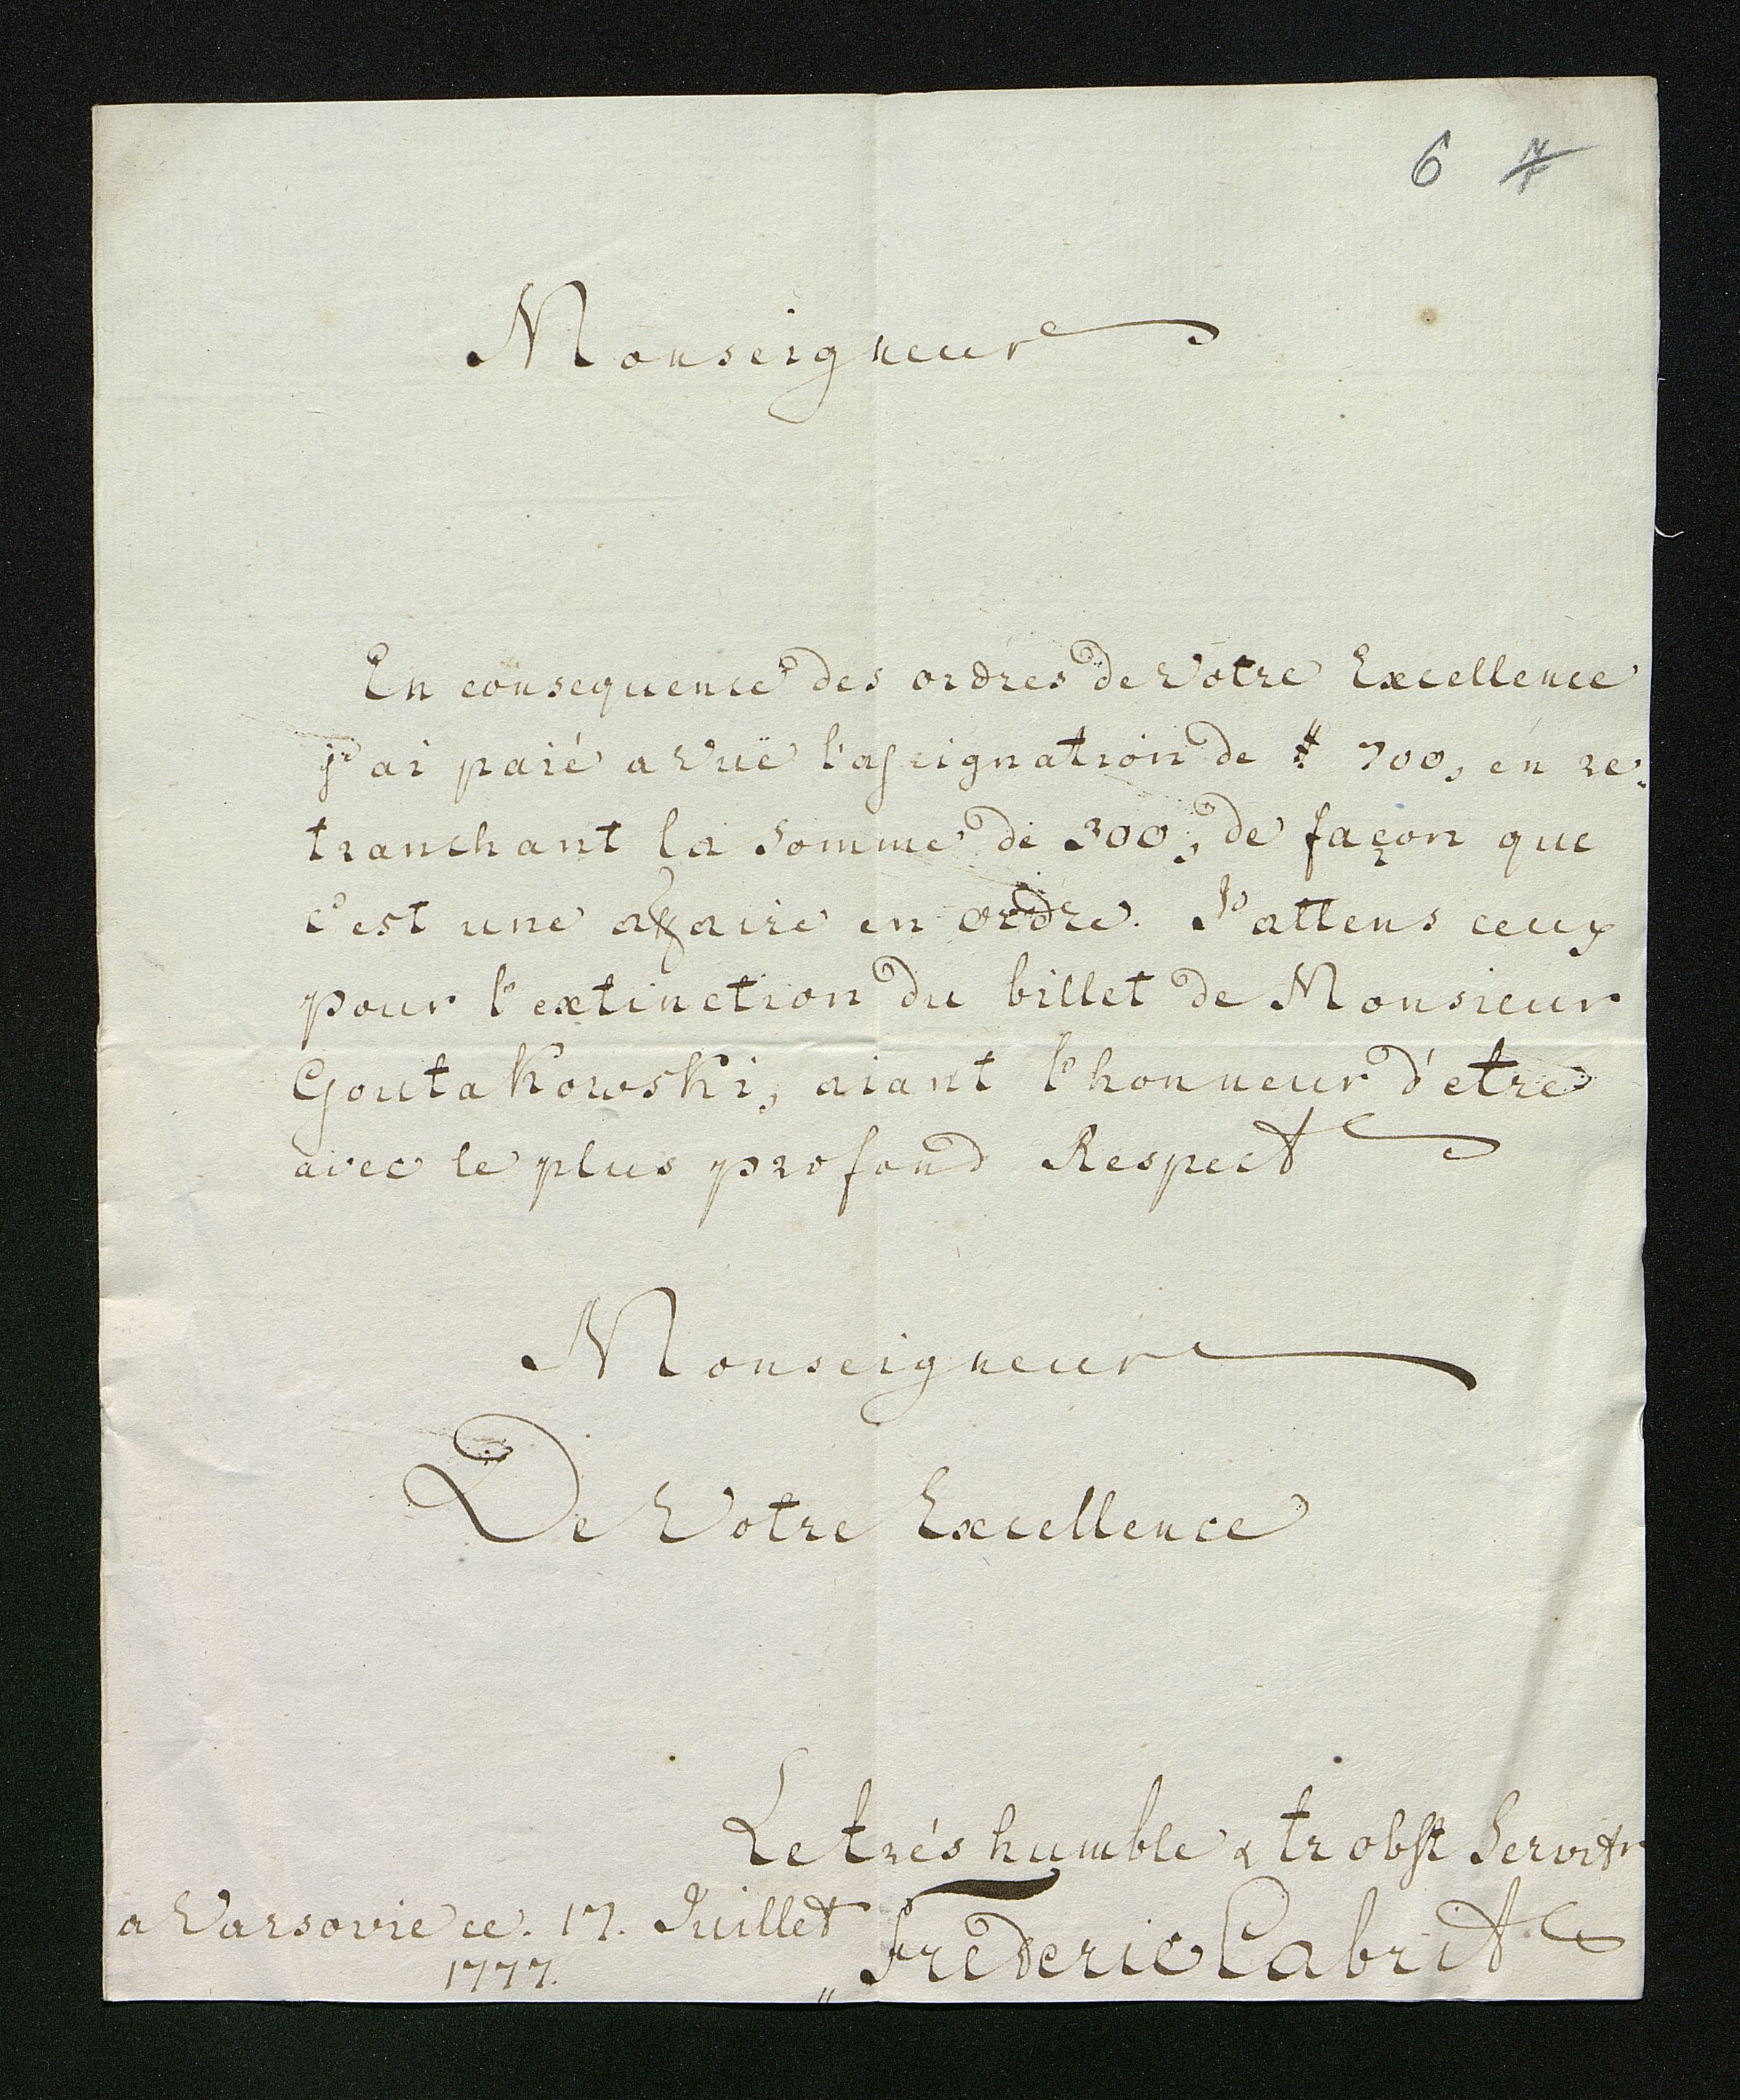 6 7
Monseigneur
En consequence des ordres de Votre Excellence
j'ai paié a vuë l'assignation de # 700, en re:
tranchant la somme de 300, de façon que
c'est une affaire en ordre. J'attens ceux
pour l'extinction du billet de Monsieur
Goutakowski, aiant l'honneur d'etre
avec le plus profond Respect
Monseigneur
De Votre Excellence
Le trés humble & tr obst Servitr
a Varsovie ce. 17. Juillet
1777.
Frederic Cabrit